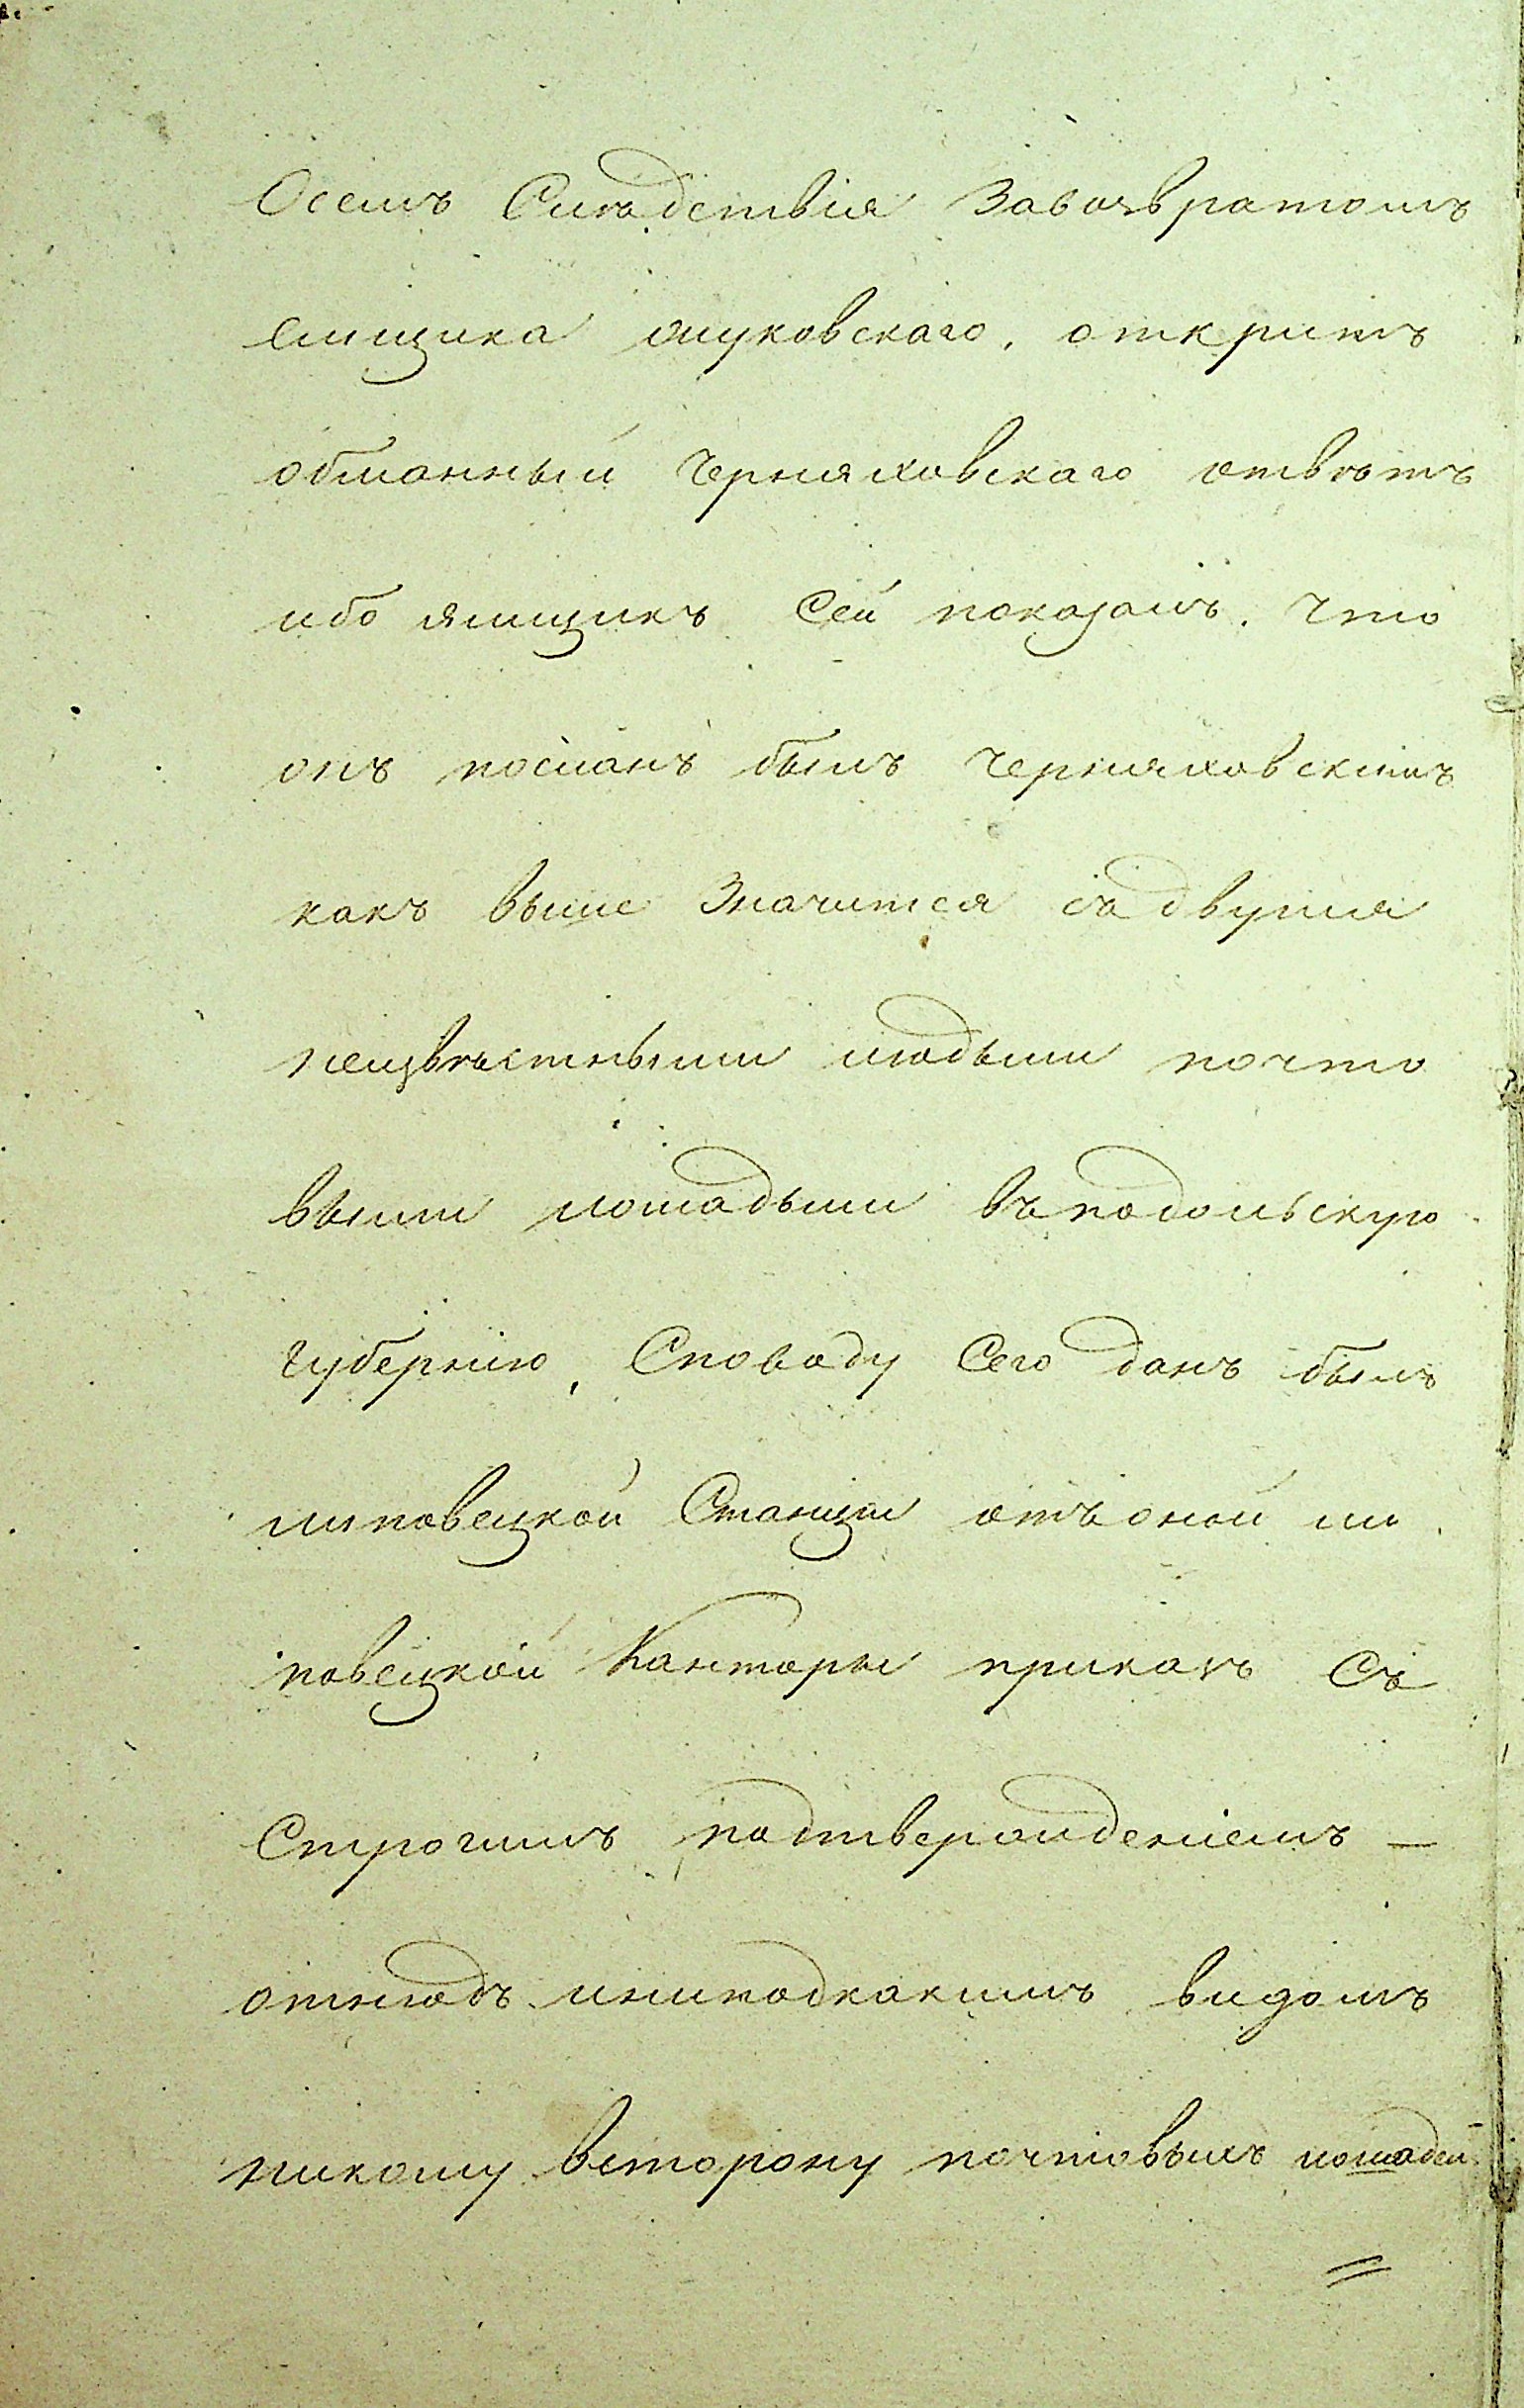 Осемъ Слѣдствія Завозвратомъ
емщика жуковскаго, открытъ
обманный Черняховскаго отвѣтъ
ибо ямщикъ Сей показалъ, что
онъ посланъ былъ Черняховскимъ
какъ выше Значится съ двумя
неизвѣстными людьми почто
выми лошадьми въ подольскую
губернію, Споводу Сего данъ былъ
липовецкой Станціи отъ оной ли
повецкой Канторы приказъ Съ
Строгимъ подтвержденіемъ —
отнюдъ иниподкакимъ видомъ
никому Всторону почтовыхъ лошадей